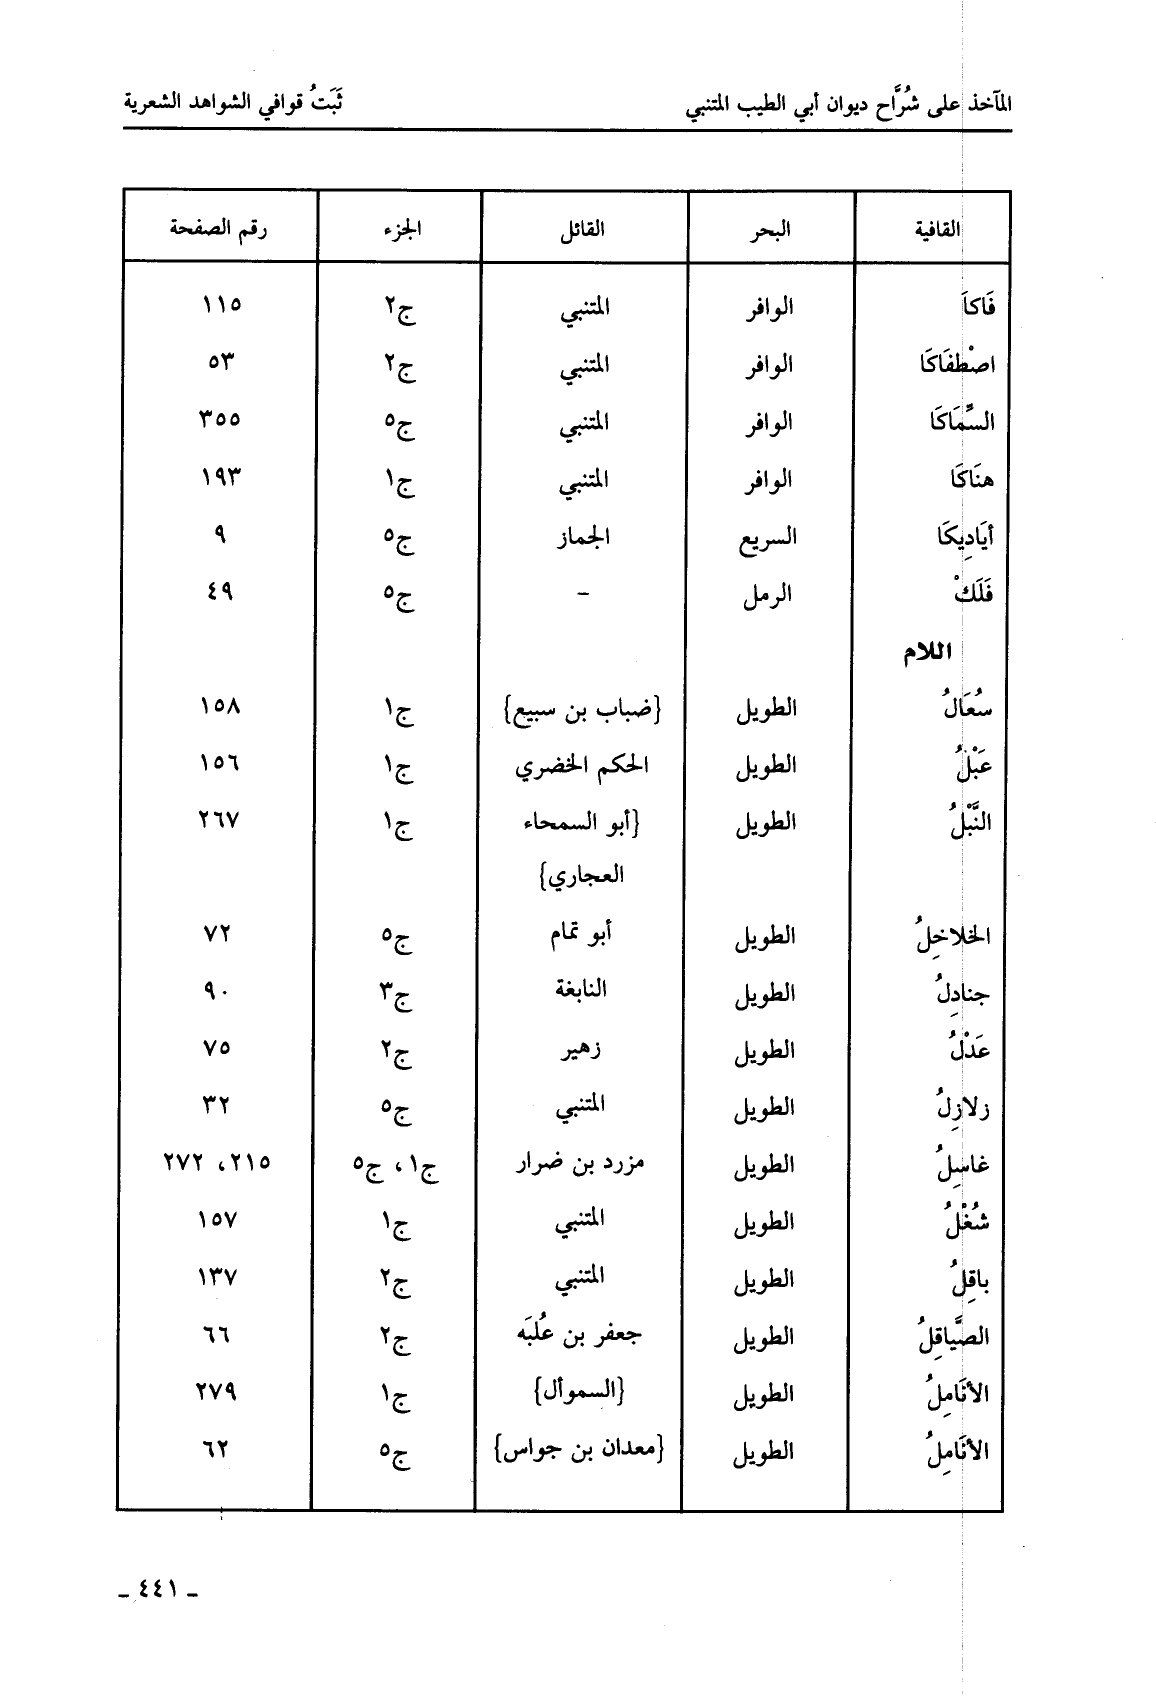 المآخذ على شُرَّاح ديوان أبي الطيب المتنبي ثَبَتُ قوافي الشواهد الشعرية
القافية البحر القائل الجزء رقم الصفحة
فَاكاَ الوافر المتنبي ج٢ ١١٥
اصْطفَاكَا الوافر المتنبي ج٢ ٥٣
السِّمَاكَا الوافر المتنبي ج٥ ٣٥٥
هنَاكَا الوافر المتنبي ج١ ١٩٣
أيَادِيكَا السريع الجماز ج٥ ٩
فَلَكْ الرمل – ج٥ ٤٩
اللام
سُعَالُ الطويل {ضباب بن سبيع} ج١ ١٥٨
عَبْلُ الطويل الحكم الخضري ج١ ١٥٦
النَّبْلُ الطويل {أبو السمحاء ج١ ٢٦٧
العجاري}
الخلاخِلُ الطويل أبو تمام ج٥ ٧٢
جنادِلُ الطويل النابغة ج٣ ٩٠
عَدْلُ الطويل زهير ج٢ ٧٥
زلازِلُ الطويل المتنبي ج٥ ٣٢
غاسِلُ الطويل مزرد بن ضرار ج١، ج٥ ٢١٥، ٢٧٢
شُغْلُ الطويل المتنبي ج١ ١٥٧
باقِلُ الطويل المتنبي ج٢ ١٣٧
الصَّياقِلُ الطويل جعفر بن عُلبَه ج٢ ٦٦
الأنَامِلُ الطويل {السموأل} ج١ ٢٧٩
الأنَامِلُ الطويل {معدان بن جواس} ج٥ ٦٢
ـ ٤٤١ ـ